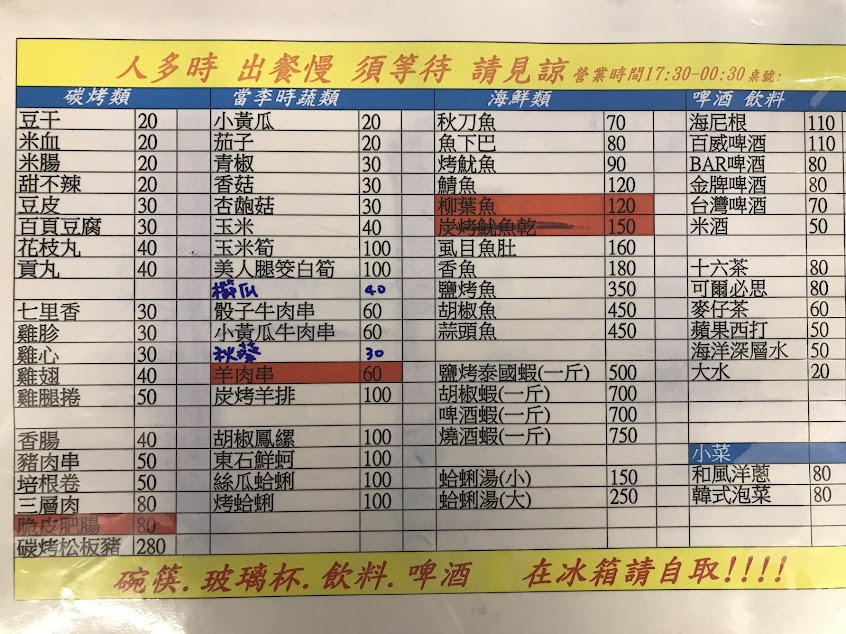 人多時 出餐慢 須等待 請見諒 營業時間17:30-00:30 桌號:
碳烤類 當季時蔬類 海鮮類 啤酒 飲料
豆干 20 小黃瓜 20 秋刀魚 70 海尼根 110
米血 20 茄子 20 魚下巴 80 百威啤酒 110
米腸 20 青椒 30 烤魷魚 90 BAR啤酒 80
甜不辣 20 香菇 30 鯖魚 120 金牌啤酒 80
豆皮 30 杏鮑菇 30 柳葉魚 120 台灣啤酒 70
百頁豆腐 30 玉米 40 炭烤魷魚乾 150 米酒 50
花枝丸 40 玉米筍 100 虱目魚肚 160
貢丸 40 美人腿筊白筍 100 香魚 180 十六茶 80
櫛瓜 40 鹽烤魚 350 可爾必思 80
七里香 30 骰子牛肉串 60 胡椒魚 450 麥仔茶 60
雞胗 30 小黃瓜牛肉串 60 蒜頭魚 450 蘋果西打 50
雞心 30 秋葵 30 海洋深層水 50
雞翅 40 羊肉串 60 鹽烤泰國蝦(一斤) 500 大水 20
雞腿捲 50 炭烤羊排 100 胡椒蝦(一斤) 700
啤酒蝦(一斤) 700
香腸 40 胡椒鳳螺 100 燒酒蝦(一斤) 750
豬肉串 50 東石鮮蚵 100 小菜
培根卷 50 絲瓜蛤蜊 100 蛤蜊湯(小) 150 和風洋蔥 80
三層肉 80 烤蛤蜊 100 蛤蜊湯(大) 250 韓式泡菜 80
脆皮肥腸 80
碳烤松板豬 280
碗筷.玻璃杯.飲料.啤酒 在冰箱請自取!!!!